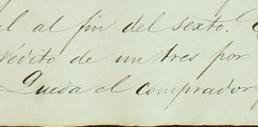 el al fin del sexto.
rédito de un tres por
Queda el comprador